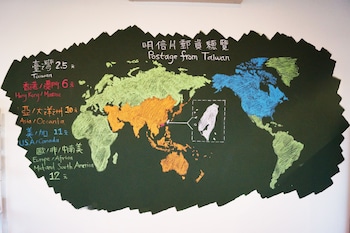 明信片郵資總覽
Postage from Taiwan
臺灣 2.5元
Taiwan
香港/澳門 6元
Hong Kong/Macau
亞/大洋洲 10元
Asia/Oceania
美/加 11元
U.S.A/Canada
歐/非/中南美
Europe/Africa
Mid and South America
12元